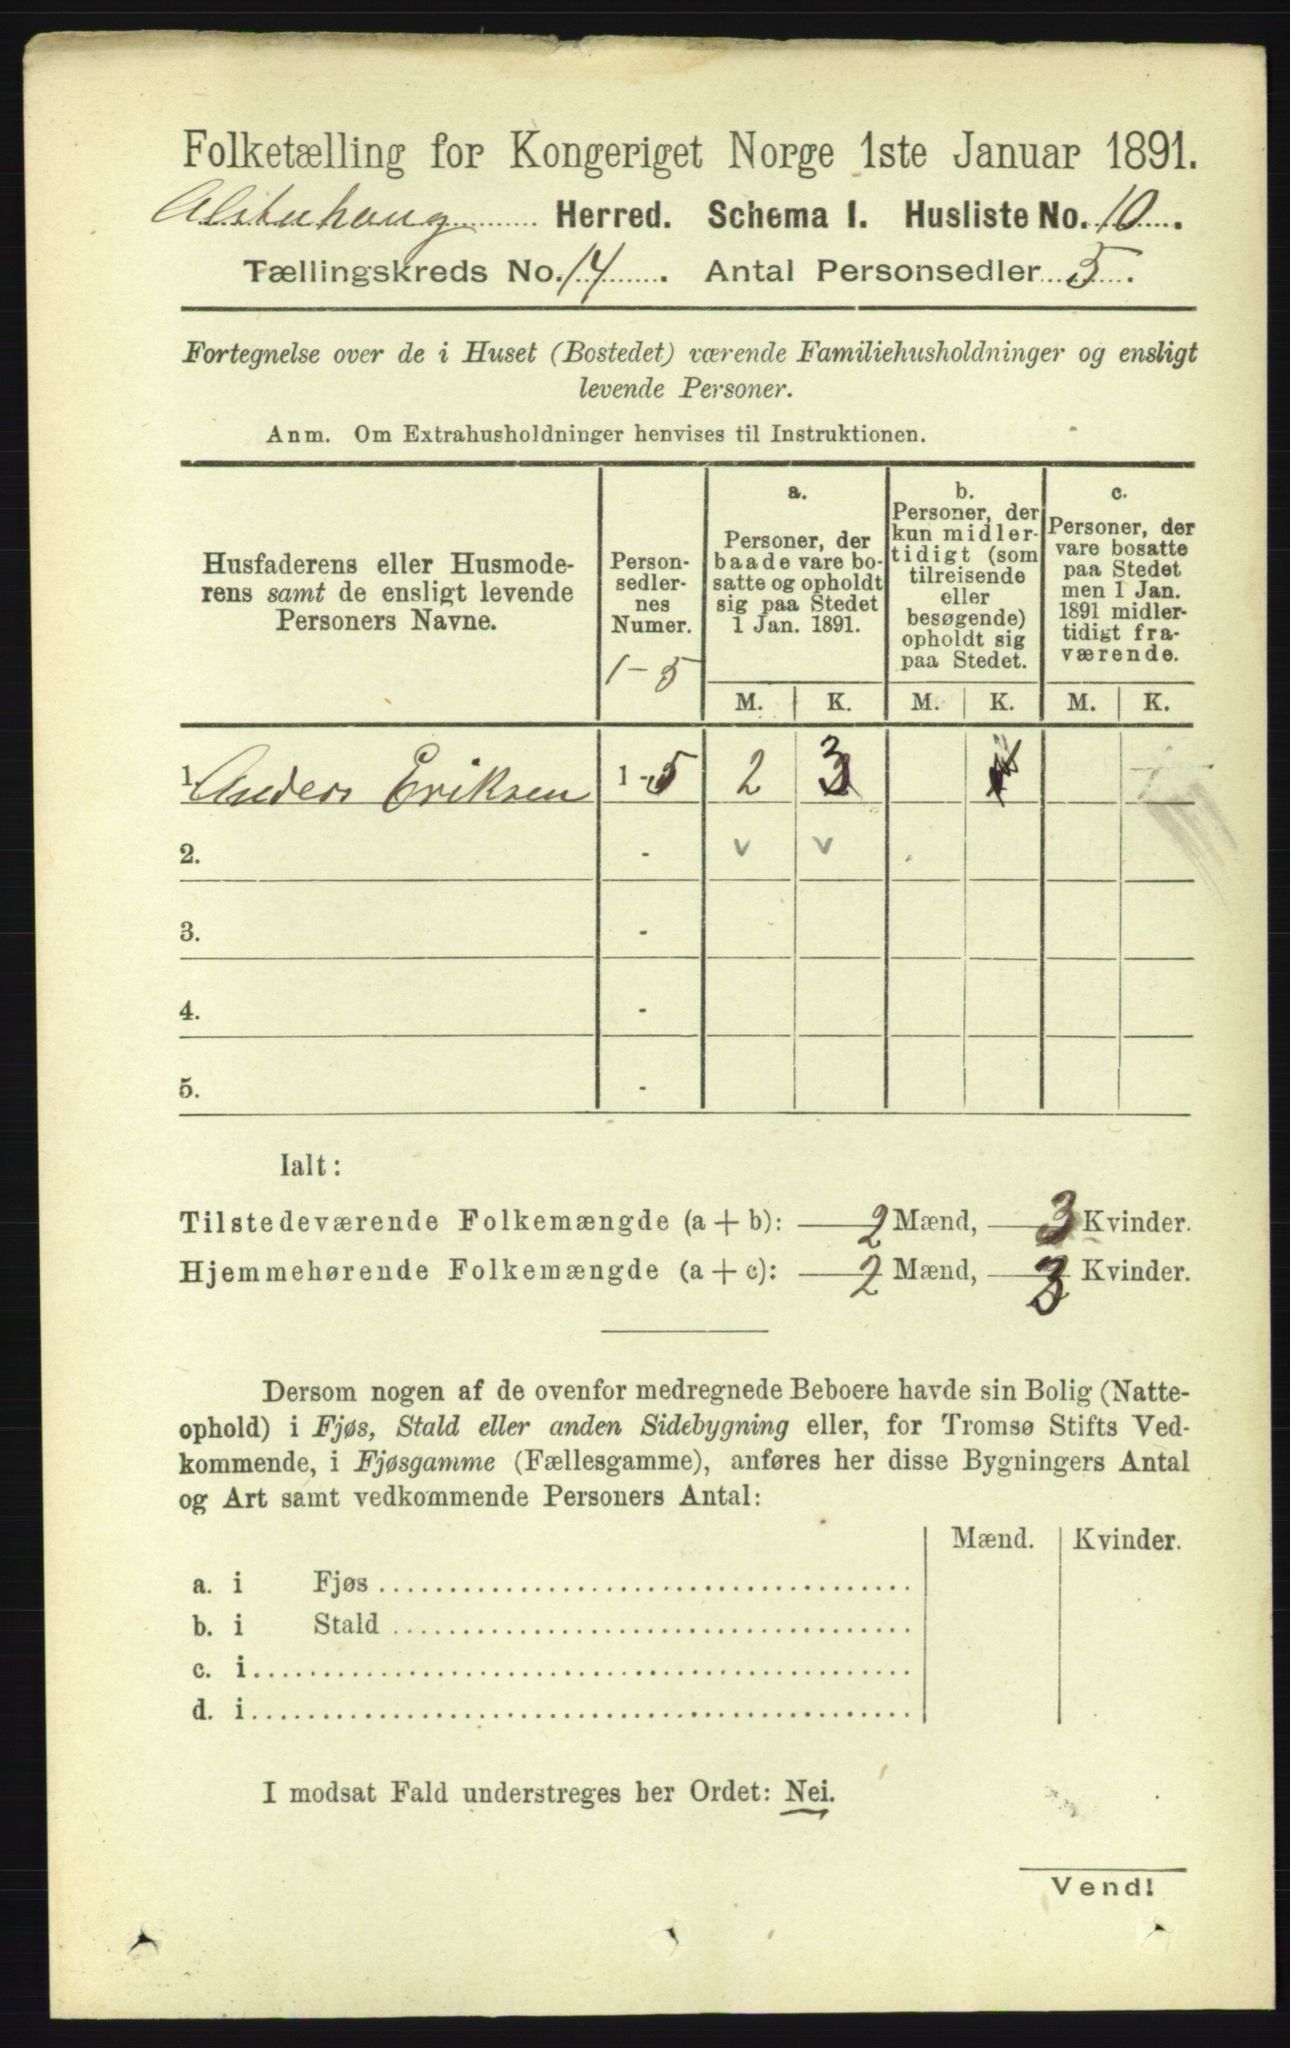 Folketælling for Kongeriget Norge 1ste Januar 1891.
Alstahaug Herred. Schema I. Husliste No. 10.
Tællingskreds No. 14. Antal Personsedler 5.
Fortegnelse over de i Huset (Bostedet) værende Familiehusholdninger og ensligt
levende Personer.
Anm. Om Extrahusholdninger henvises til Instruktionen.
Husfaderens eller Husmode-
rens samt de ensligt levende
Personers Navne.
Person-
sedler-
nes
Numer.
1-5
a.
Personer, der
baade vare bo-
satte og opholdt
sig paa Stedet
1 Jan. 1891.
b.
Personer, der
kun midler-
tidigt (som
tilreisende
eller
besøgende)
opholdt sig
paa Stedet.
c.
Personer, der
vare bosatte
paa Stedet
men 1 Jan.
1891 midler-
tidigt fra-
værende.
M. K. M. K. M. K.
1. Anders Eriksen 1-5 2 3
2. - v v
3. -
4. -
5. -
Ialt:
Tilstedeværende Folkemængde (a + b): 2 Mænd, 3 Kvinder.
Hjemmehørende Folkemængde (a + c): 2 Mænd, 3 Kvinder.
Dersom nogen af de ovenfor medregnede Beboere havde sin Bolig (Natte-
ophold) i Fjøs, Stald eller anden Sidebygning eller, for Tromsø Stifts Ved-
kommende, i Fjøsgamme (Fællesgamme), anføres her disse Bygningers Antal
og Art samt vedkommende Personers Antal:
Mænd. Kvinder.
a. i Fjøs
b. i Stald
c. i
d. i
I modsat Fald understreges her Ordet: Nei.
Vend!